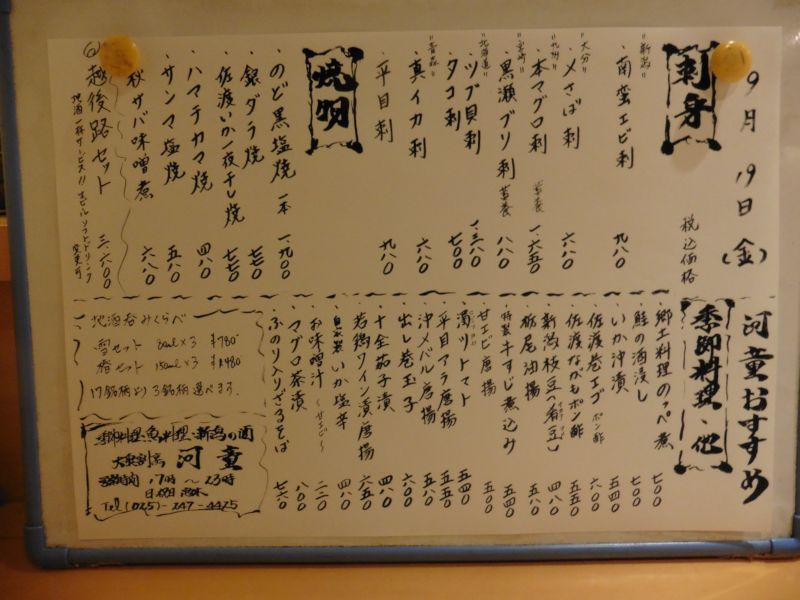 9月19日(金)
河童おすすめ
税込価格
刺身
"新潟"
・南蛮エビ刺 九八〇
"大分"
・〆さば刺 六八〇
"九州"
・本マグロ刺 蓄養 一、六五〇
"宮崎"
・黒瀬ブリ刺 蓄養 八八〇
"北海道"
・ツブ貝刺 一、三八〇
・タコ刺 七〇〇
"青森"
・真イカ刺 六八〇
・平目刺 九八〇
焼唄
・のど黒塩焼 一本 一、九〇〇
・銀ダラ焼 七七〇
・佐渡いか一夜干し焼 七七〇
・ハマチカマ焼 四八〇
・サンマ塩焼 五八〇
・秋サバ味噌煮 六八〇
@越後路セット 三、六〇〇
地酒一杯サービス!! 生ビール ソフトドリンク 変更可
季節料理・他
・郷土料理のっぺ煮 七〇〇
・鮭の酒浸し 七〇〇
・いか沖漬 五四〇
・佐渡巻エゴ ポン酢 六〇〇
・佐渡ながもポン酢 五五〇
・新潟枝豆
・栃尾油揚 五四〇
・特製牛すじ煮込み 五四〇
・甘エビ唐揚 五〇〇
・潟ツトマト 五四〇
・平目アラ唐揚 五五〇
・沖メバル唐揚 五八〇
・出し巻玉子 六〇〇
・十全茄子漬 四八〇
・若鶏ワイン漬唐揚 六五〇
・自家製いか塩辛 四八〇
・お味噌汁 〜甘エビ〜 二二〇
・マグロ茶漬 八〇〇
・ふのり入りざるそば 七六〇
地酒呑みくらべ
雪セット 80ml×3 ¥780
椿セット 150ml×3 ¥1480
17銘柄より3銘柄選べます.
季節料理・魚料理・新潟の酒
大衆割烹 河童
営業時間 17時〜23時
日・祝日 休み
Tel (025)-247-4475